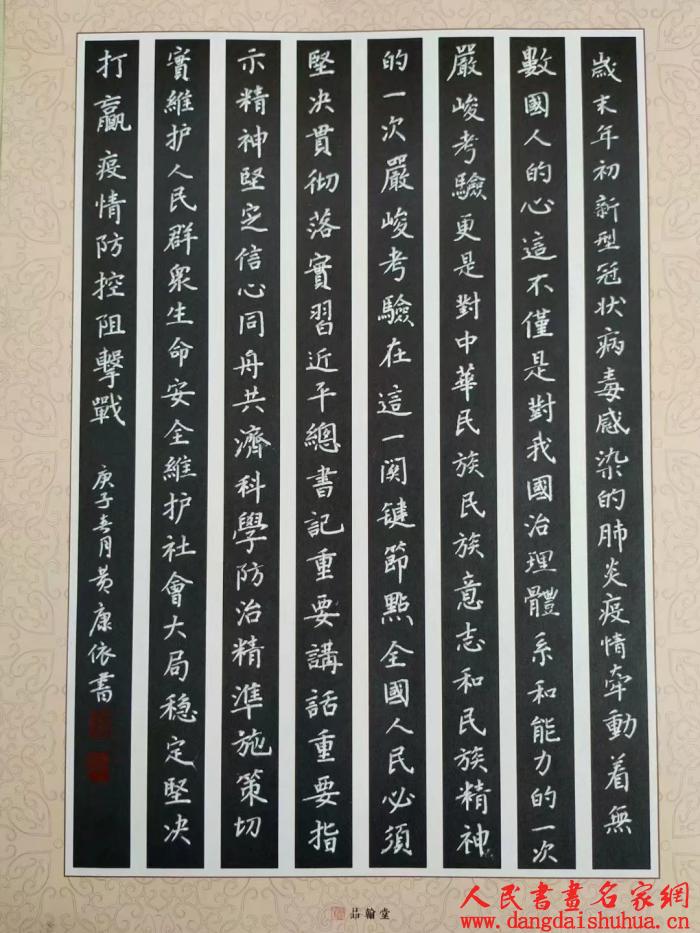 歲末年初新型冠状病毒感染的肺炎疫情牽動着無
數國人的心這不僅是對我國治理體系和能力的一次
嚴峻考驗更是對中華民族民族意志和民族精神
的一次嚴峻考驗在這一関键節點全國人民必須
堅决貫彻落實習近平總書記重要講話重要指
示精神堅定信心同舟共濟科學防治精準施策切
實維护人民群眾生命安全維护社會大局稳定堅决
打贏疫情防控阻擊戰
庚子春月黄康依書
品翰堂
人民書畫名家網
www.dangdaishuhua.cn